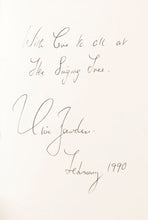 With Love to all at
The Singing Tree.
February 1990